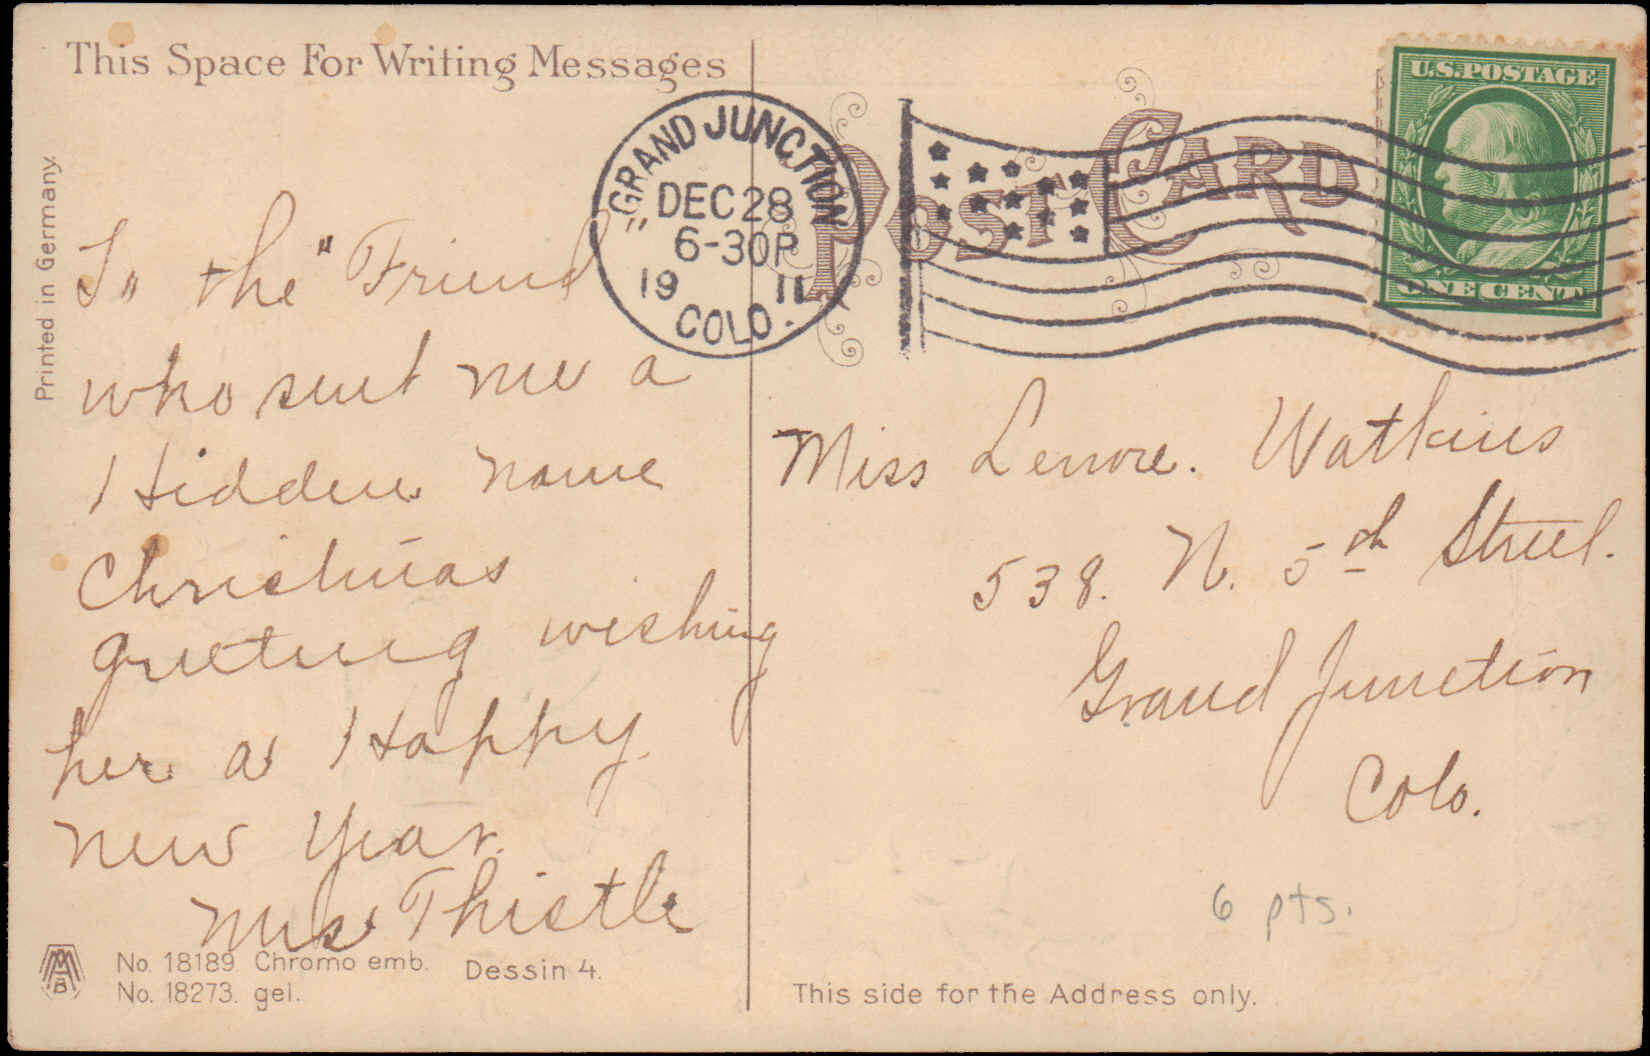 This Space For Writing Messages
Printed in Germany.
To the "Friend"
who sent me a
Hidden name
Christmas
greeting wishing
her a Happy
new Year.
Mrs Thistle
MAB
No. 18189. Chromo emb. Dessin 4.
No. 18273. gel.
POST CARD
GRAND JUNCTION
DEC 28
6-30P
19 11
COLO.
U.S. POSTAGE
ONE CENT
Miss Lenore. Watkins
538. N. 5th Street.
Grand Junction
Colo.
6 pts.
This side for the Address only.